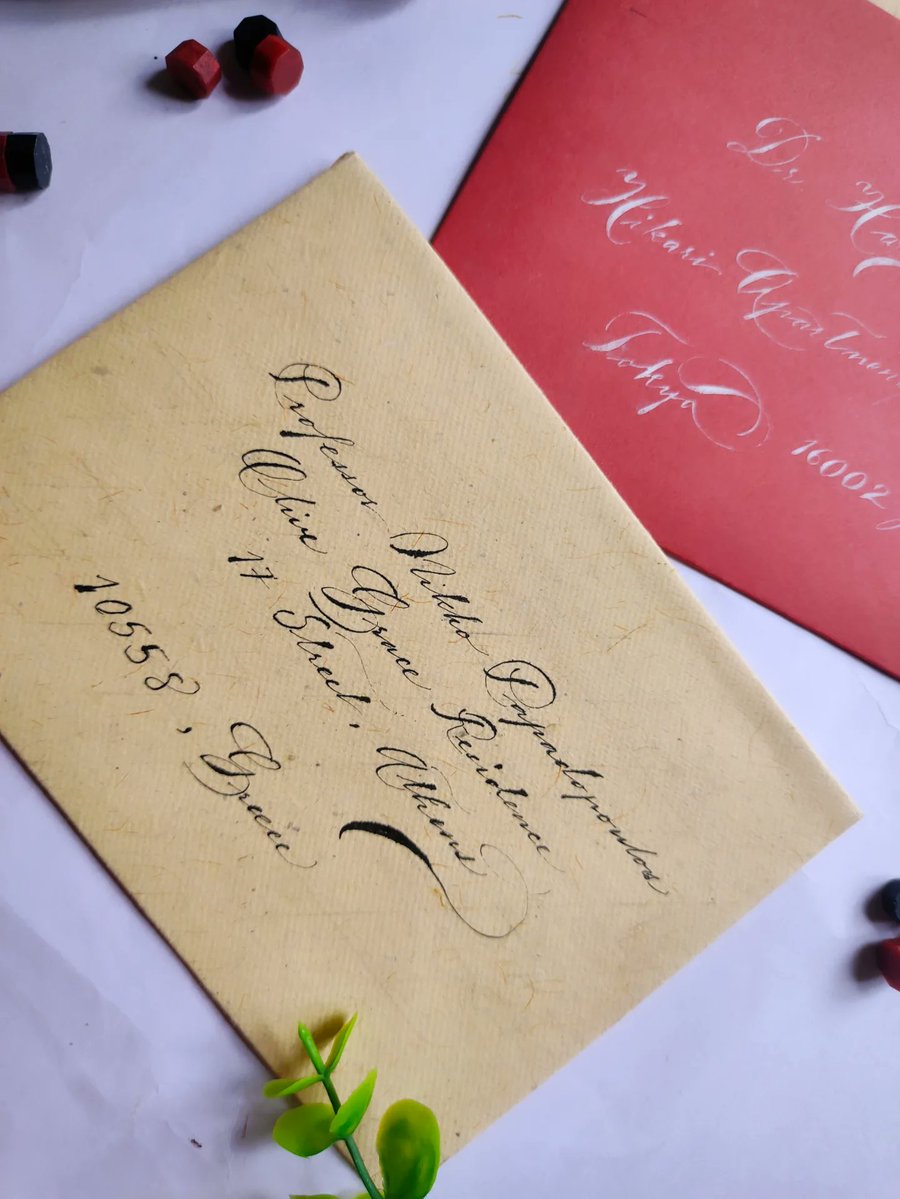 Professor Nikho Papadopoulos
Olive Grace Residence
17 Street, Athens
10558, Greece
Dr.
Hikari
Tokyo
16002